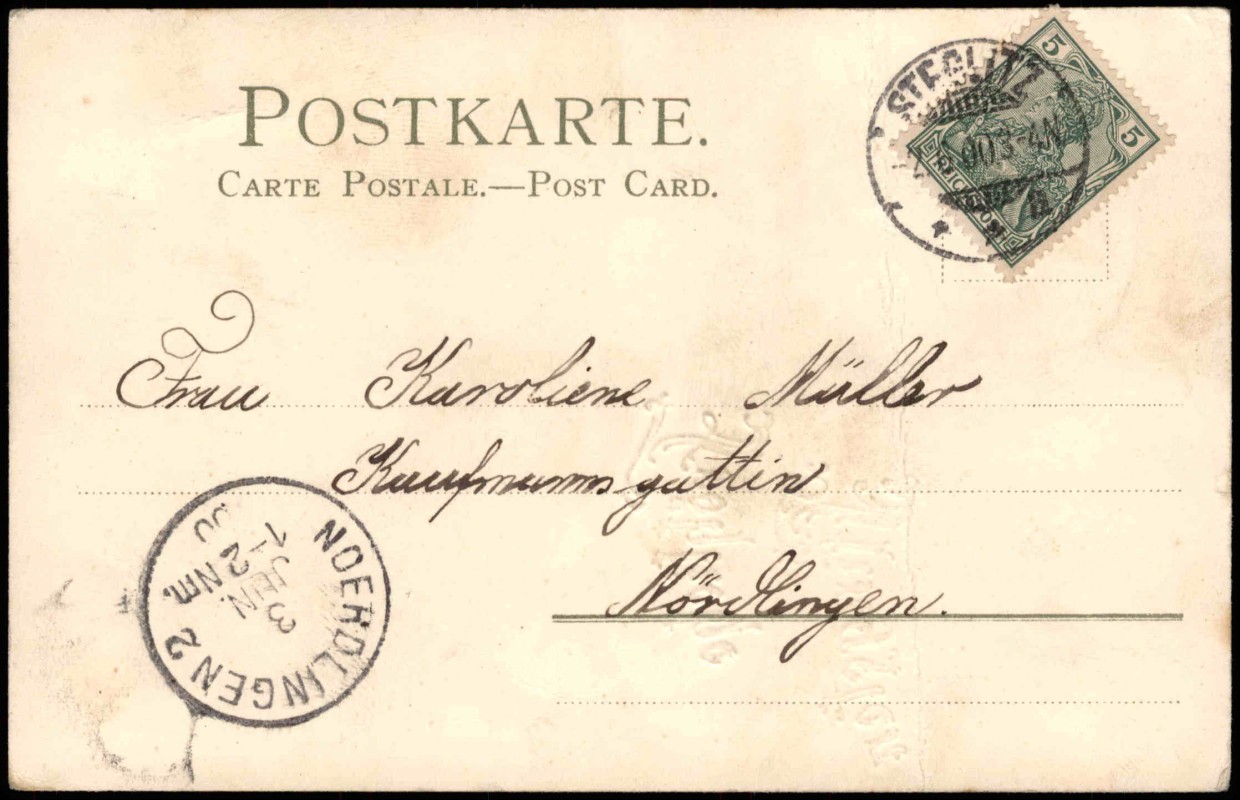 POSTKARTE.
CARTE POSTALE.—POST CARD.
STEGLITZ
5
5
REICHSPOST
3-4N
Frau Karoliene Müller
Kaufmannsgattin
Nördlingen.
NOERDLINGEN 2
3
JEN.
1-2 Nm.
00